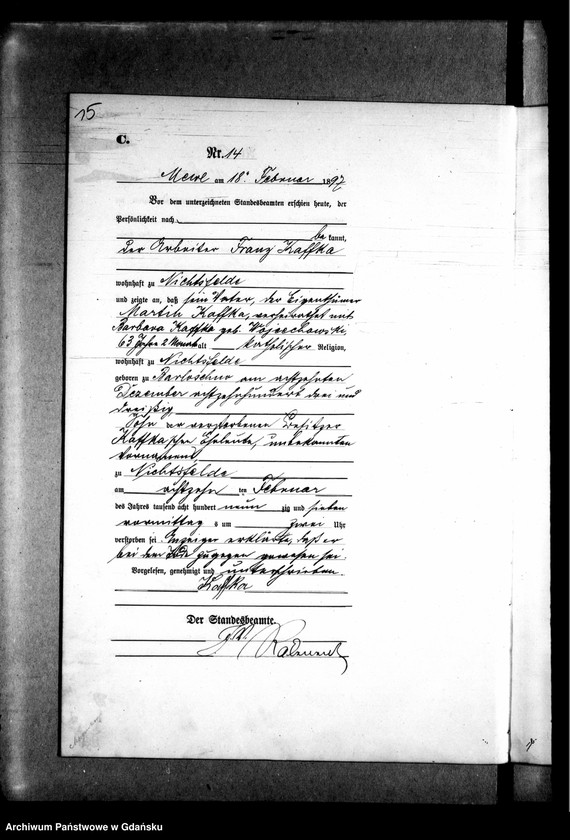 15
C.
Nr. 14
Mewe am 18. Februar 1897
Vor dem unterzeichneten Standesbeamten erschien heute, der
Persönlichkeit nach
be kannt,
der Arbeiter Franz Kaffka
wohnhaft zu Nichtsfelde
und zeigte an, daß sein Vater, der Eigenthümer
Martin Kaffka, verheirathet mit
Barbara Kaffka geb. Wojcechowski
63 Jahre 2 Monat alt katholischer Religion,
wohnhaft zu Nichtsfelde
geboren zu Barloschno am achtzehnten
Dezember achtzehnhundert drei und
dreißig
Sohn der verstorbenen Besitzer
Kaffka'schen Eheleute, unbekannten
Vornamens
zu Nichtsfelde
am achtzehn ten Februar
des Jahres tausend acht hundert neun zig und sieben
vormittag s um zwei Uhr
verstorben sei. Anzeiger erklärte, daß er
bei dem Tode zugegen gewesen sei.
Vorgelesen, genehmigt und unterschrieben.
Kaffka
Der Standesbeamte.
J. V.
Archiwum Państwowe w Gdańsku